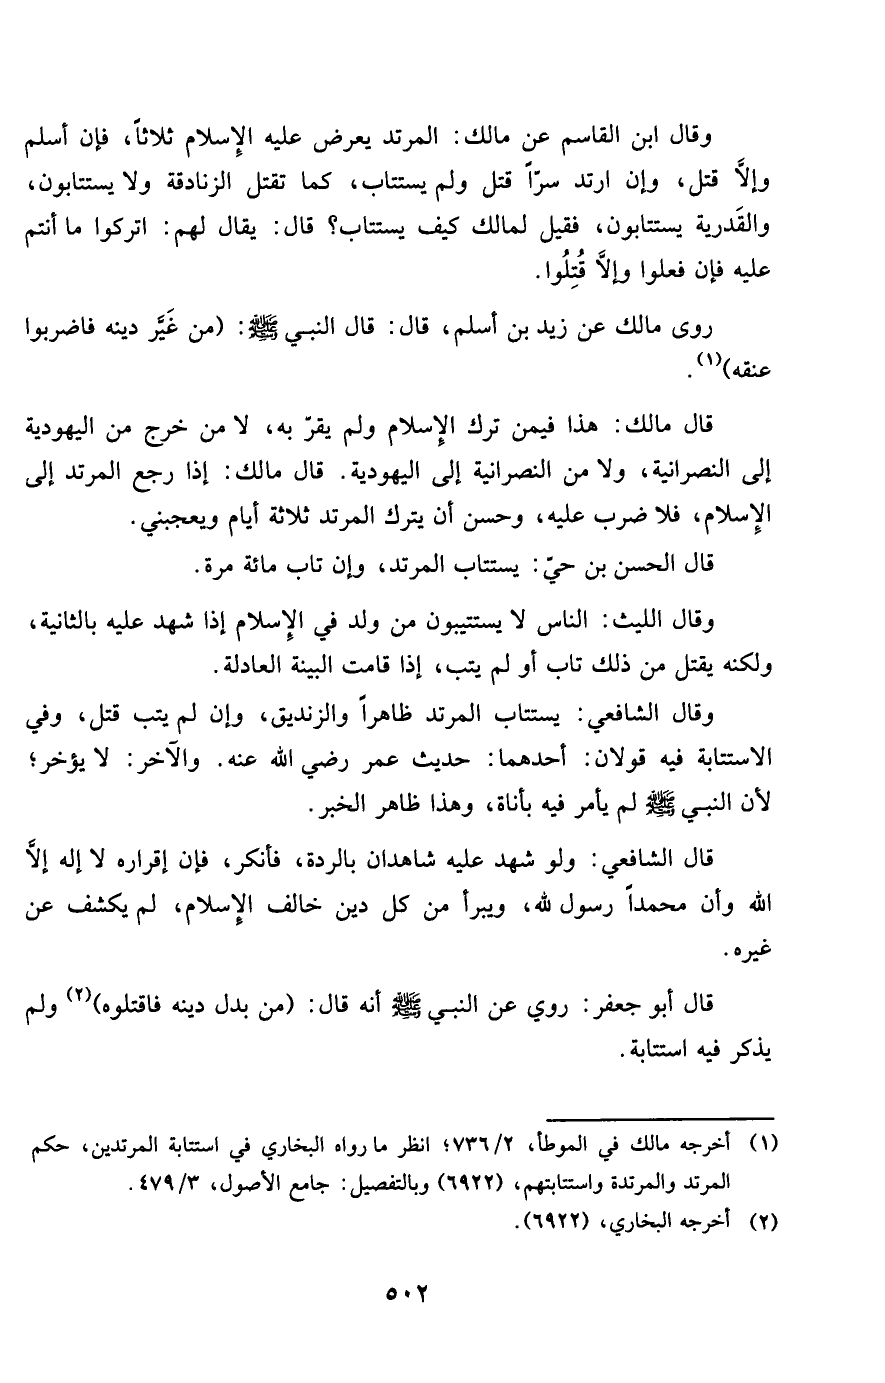 وقال ابن القاسم عن مالك: المرتد يعرض عليه الإِسلام ثلاثاً، فإن أسلم
وإلاَّ قتل، وإن ارتد سرّاً قتل ولم يستتاب، كما تقتل الزنادقة ولا يستتابون،
والقَدرية يستتابون، فقيل لمالك كيف يستتاب؟ قال: يقال لهم: اتركوا ما أنتم
عليه فإن فعلوا وإلاَّ قُتِلُوا.
روى مالك عن زيد بن أسلم، قال: قال النبي ﷺ: (من غَيَّر دينه فاضربوا
عنقه)(١).
قال مالك: هذا فيمن ترك الإِسلام ولم يقرّ به، لا من خرج من اليهودية
إلى النصرانية، ولا من النصرانية إلى اليهودية. قال مالك: إذا رجع المرتد إلى
الإِسلام، فلا ضرب عليه، وحسن أن يترك المرتد ثلاثة أيام ويعجبني.
قال الحسن بن حيّ: يستتاب المرتد، وإن تاب مائة مرة.
وقال الليث: الناس لا يستتيبون من ولد في الإِسلام إذا شهد عليه بالثانية،
ولكنه يقتل من ذلك تاب أو لم يتب، إذا قامت البينة العادلة.
وقال الشافعي: يستتاب المرتد ظاهراً والزنديق، وإن لم يتب قتل، وفي
الاستتابة فيه قولان: أحدهما: حديث عمر رضي الله عنه. والآخر: لا يؤخر؛
لأن النبي ﷺ لم يأمر فيه بأناة، وهذا ظاهر الخبر.
قال الشافعي: ولو شهد عليه شاهدان بالردة، فأنكر، فإن إقراره لا إله إلاَّ
الله وأن محمداً رسول لله، ويبرأ من كل دين خالف الإِسلام، لم يكشف عن
غيره.
قال أبو جعفر: روي عن النبي ﷺ أنه قال: (من بدل دينه فاقتلوه)(٢) ولم
يذكر فيه استتابة.
(١) أخرجه مالك في الموطأ، ٧٣٦/٢؛ انظر ما رواه البخاري في استتابة المرتدين، حكم
المرتد والمرتدة واستتابتهم، (٦٩٢٢) وبالتفصيل: جامع الأصول، ٤٧٩/٣.
(٢) أخرجه البخاري، (٦٩٢٢).
٥٠٢